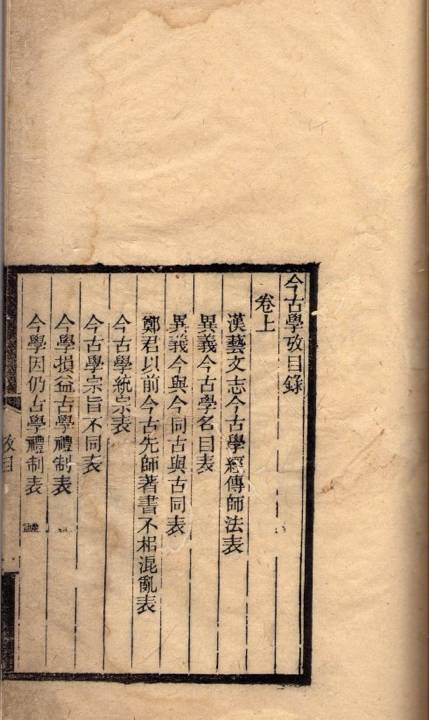 今古學攷目錄
卷上
漢藝文志今古學經傳師法表
異義今古學名目表
異義今與今同古與古同表
鄭君以前今古先師著書不相混亂表
今古學統宗表
今古學宗旨不同表
今學損益古學禮制表
今學因仍古學禮制表
攷目